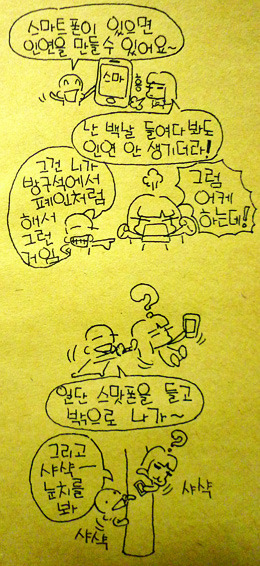 스마트폰이 있으면
인연을 만들 수 있어요~
스마
흥
난 백날 들여다 봐도
인연 안 생기더라!
그건 니가
방구석에서
폐인처럼
해서
그런
거임
그럼
어케
하는데!
?
일단 스맛폰을 들고
밖으로 나가~
?
그리고
샤샥—
눈치를
봐
샤샥
샤샥